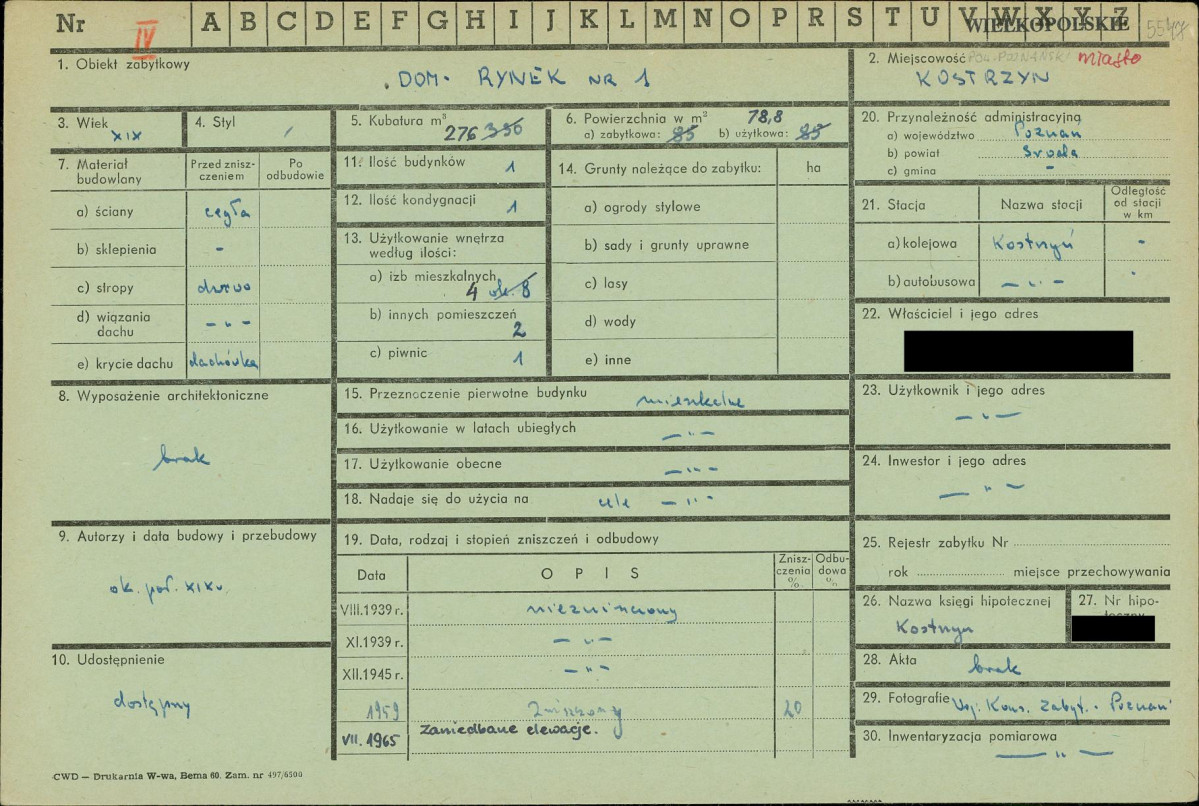 Nr IV A B C D E F G H I J K L M N O P R S T U V W X Y Z WIELKOPOLSKIE
1. Obiekt zabytkowy
DOM - RYNEK NR 1
2. Miejscowość POW. POZNAŃSKI miasto
KOSTRZYN
3. Wiek
XIX
4. Styl
/
5. Kubatura m³
276 350
6. Powierzchnia w m² 78,8
a) zabytkowa: 85 b) użytkowa: 85
20. Przynależność administracyjną
a) województwo Poznań
b) powiat Środa
c) gmina -
7. Materiał budowlany
Przed zniszczeniem
Po odbudowie
a) ściany cegła
b) sklepienia -
c) stropy drewno
d) wiązania dachu - " -
e) krycie dachu dachówka
11. Ilość budynków 1
12. Ilość kondygnacji 1
13. Użytkowanie wnętrza według ilości:
a) izb mieszkalnych
4 ok. 8
b) innych pomieszczeń
2
c) piwnic 1
14. Grunty należące do zabytku: ha
a) ogrody stylowe
b) sady i grunty uprawne
c) lasy
d) wody
e) inne
21. Stacja
Nazwa stacji
Odległość od stacji w km
a) kolejowa Kostrzyń -
b) autobusowa - " -
22. Właściciel i jego adres
8. Wyposażenie architektoniczne
brak
15. Przeznaczenie pierwotne budynku mieszkalne
16. Użytkowanie w latach ubiegłych - " -
17. Użytkowanie obecne - " -
18. Nadaje się do użycia na cele - " -
23. Użytkownik i jego adres
- " -
24. Inwestor i jego adres
- " -
9. Autorzy i data budowy i przebudowy
ok. poł. XIX w.
19. Data, rodzaj i stopień zniszczeń i odbudowy
Data
O P I S
Zniszczenia %
Odbudowa %
VIII.1939 r. niezniszczony
XI.1939 r. - " -
XII.1945 r. - " -
1959 Zniszczony 20
VII. 1965 Zaniedbane elewacje.
10. Udostępnienie
dostępny
25. Rejestr zabytku Nr
rok miejsce przechowywania
26. Nazwa księgi hipotecznej
Kostrzyn
27. Nr hipo-
28. Akta brak
29. Fotografie Woj. Kons. Zabyt. - Poznań
30. Inwentaryzacja pomiarowa
- " -
CWD — Drukarnia W-wa, Bema 60. Zam. nr 497/6500